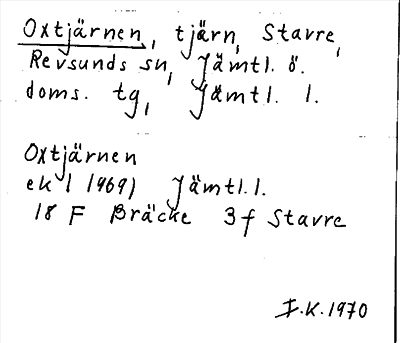 Oxtjärnen, tjärn, Stavre,
Revsunds sn, Jämtl. ö.
doms. tg, Jämtl. l.
Oxtjärnen
ek ( 1969) Jämtl. l.
18 F Bräcke 3f Stavre
I.K. 1970